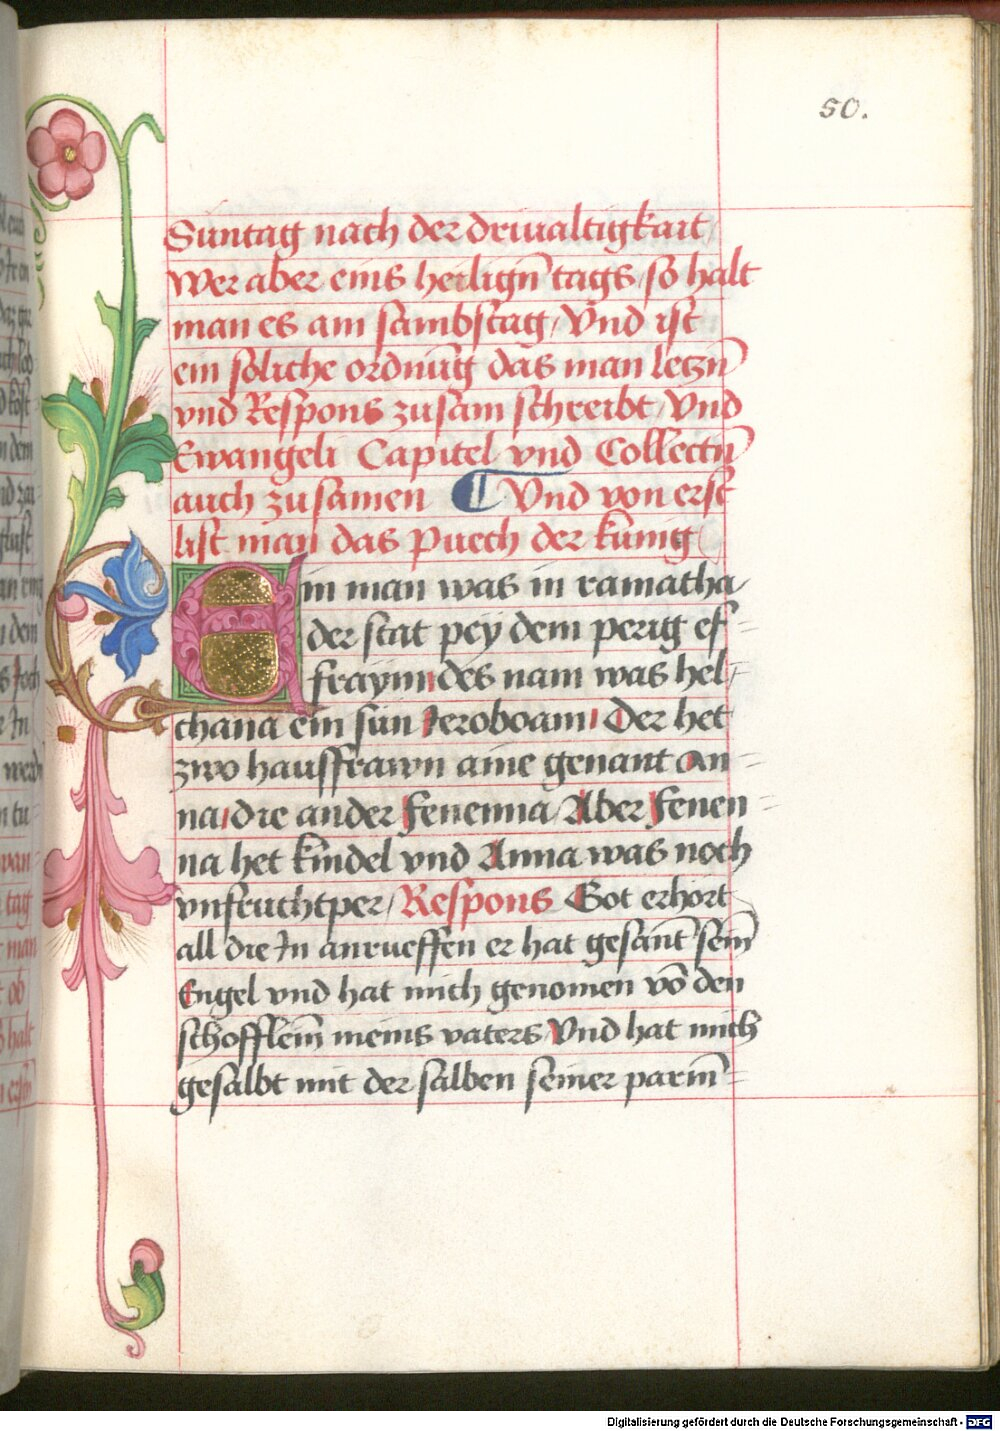 50.
Suntag nach der driualtigkait /
Wer aber eins heilign̄ tags / so halt
man es am sambstag / Vnd ist
ein soliche ordnūg das man leczn̄
vnd Respons zusam schreibt / Vnd
Ewangeli Capitel vnd Collectn̄
auch zu samen ¶ Vnd von erst
list man das Puech der kunig
Ein man was in ramatha /
der stat pey dem perig ef=
fraym / des nam was hel=
chana ein sun Jeroboam / Der het
zwo hausffrawn aine genant An=
na / die ander Fenenna / Aber Fenen=
na het kindel vnd Anna was noch
vnfruchtper / Respons Got erhort
all die In anrueffen er hat gesant sein̄
Engel vnd hat mich genomen vō den
schofflein̄ meins vaters / Vnd hat mich
gesalbt mit der salben seiner parm̄=
Digitalisierung gefördert durch die Deutsche Forschungsgemeinschaft - DFG